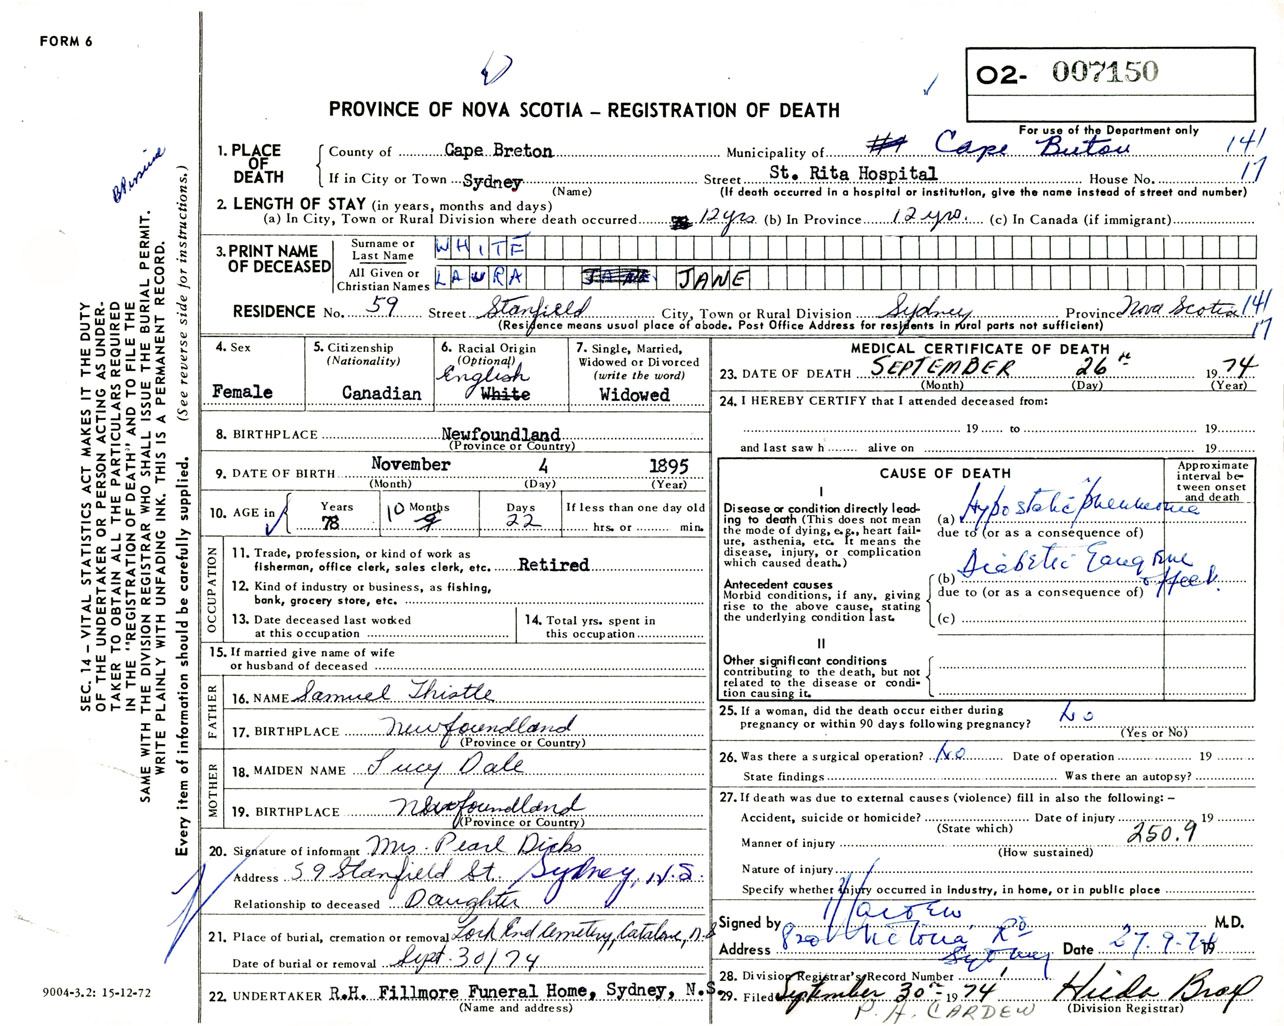 FORM 6
O2- 007150
PROVINCE OF NOVA SCOTIA – REGISTRATION OF DEATH
For use of the Department only
1. PLACE OF DEATH
County of Cape Breton Municipality of #1 Cape Breton 141
If in City or Town Sydney Street St. Rita Hospital House No. 17
(Name) (If death occurred in a hospital or institution, give the name instead of street and number)
2. LENGTH OF STAY (in years, months and days)
(a) In City, Town or Rural Division where death occurred 12 yrs (b) In Province 12 yrs. (c) In Canada (if immigrant)
3. PRINT NAME OF DECEASED
Surname or Last Name WHITE
All Given or Christian Names LAURA JANE JANE
RESIDENCE No. 59 Street Stanfield City, Town or Rural Division Sydney Province Nova Scotia 141
(Residence means usual place of abode. Post Office Address for residents in rural parts not sufficient) 17
4. Sex
Female
5. Citizenship
(Nationality)
Canadian
6. Racial Origin
(Optional)
English
White
7. Single, Married,
Widowed or Divorced
(write the word)
Widowed
8. BIRTHPLACE Newfoundland
(Province or Country)
9. DATE OF BIRTH November 4 1895
(Month) (Day) (Year)
10. AGE in
Years 78
10 Months 9
Days 22
If less than one day old
hrs. or min.
OCCUPATION
11. Trade, profession, or kind of work as
fisherman, office clerk, sales clerk, etc. Retired
12. Kind of industry or business, as fishing,
bank, grocery store, etc.
13. Date deceased last worked
at this occupation
14. Total yrs. spent in
this occupation
15. If married give name of wife
or husband of deceased
FATHER
16. NAME Samuel Thistle
17. BIRTHPLACE Newfoundland
(Province or Country)
MOTHER
18. MAIDEN NAME Lucy Dale
19. BIRTHPLACE Newfoundland
(Province or Country)
20. Signature of informant Mrs. Pearl Dicks
Address 59 Stanfield St. Sydney, N.S.
Relationship to deceased Daughter
21. Place of burial, cremation or removal Cemetery, Catalone, N.S
Date of burial or removal Sept. 30/74
22. UNDERTAKER R.H. Fillmore Funeral Home, Sydney, N.S.
(Name and address)
MEDICAL CERTIFICATE OF DEATH
23. DATE OF DEATH SEPTEMBER 26th 1974
(Month) (Day) (Year)
24. I HEREBY CERTIFY that I attended deceased from:
19 to 19
and last saw h alive on 19
CAUSE OF DEATH
Approximate
interval be-
tween onset
and death
I
Disease or condition directly lead-
ing to death (This does not mean
the mode of dying, e.g., heart fail-
ure, asthenia, etc. It means the
disease, injury, or complication
which caused death.)
(a) Hypostatic pneumonia
due to (or as a consequence of)
Antecedent causes
Morbid conditions, if any, giving
rise to the above cause, stating
the underlying condition last.
(b) Diabetic Gangrene of feet.
due to (or as a consequence of)
(c)
II
Other significant conditions
contributing to the death, but not
related to the disease or condi-
tion causing it.
25. If a woman, did the death occur either during
pregnancy or within 90 days following pregnancy? No
(Yes or No)
26. Was there a surgical operation? No Date of operation 19
State findings Was there an autopsy?
27. If death was due to external causes (violence) fill in also the following: –
Accident, suicide or homicide? Date of injury 19
(State which)
Manner of injury 250.9
(How sustained)
Nature of injury
Specify whether injury occurred in industry, in home, or in public place
Signed by M.D.
Address 820 Victoria Rd Sydney Date 27.9.74 19
28. Division Registrar's Record Number
29. Filed September 30th 1974 Hilda
(Division Registrar)
P. A. CARDEW
SEC. 14 – VITAL STATISTICS ACT MAKES IT THE DUTY
OF THE UNDERTAKER OR PERSON ACTING AS UNDER-
TAKER TO OBTAIN ALL THE PARTICULARS REQUIRED
IN THE "REGISTRATION OF DEATH" AND TO FILE THE
SAME WITH THE DIVISION REGISTRAR WHO SHALL ISSUE THE BURIAL PERMIT.
WRITE PLAINLY WITH UNFADING INK. THIS IS A PERMANENT RECORD.
Every item of information should be carefully supplied. (See reverse side for instructions.)
9004-3.2: 15-12-72